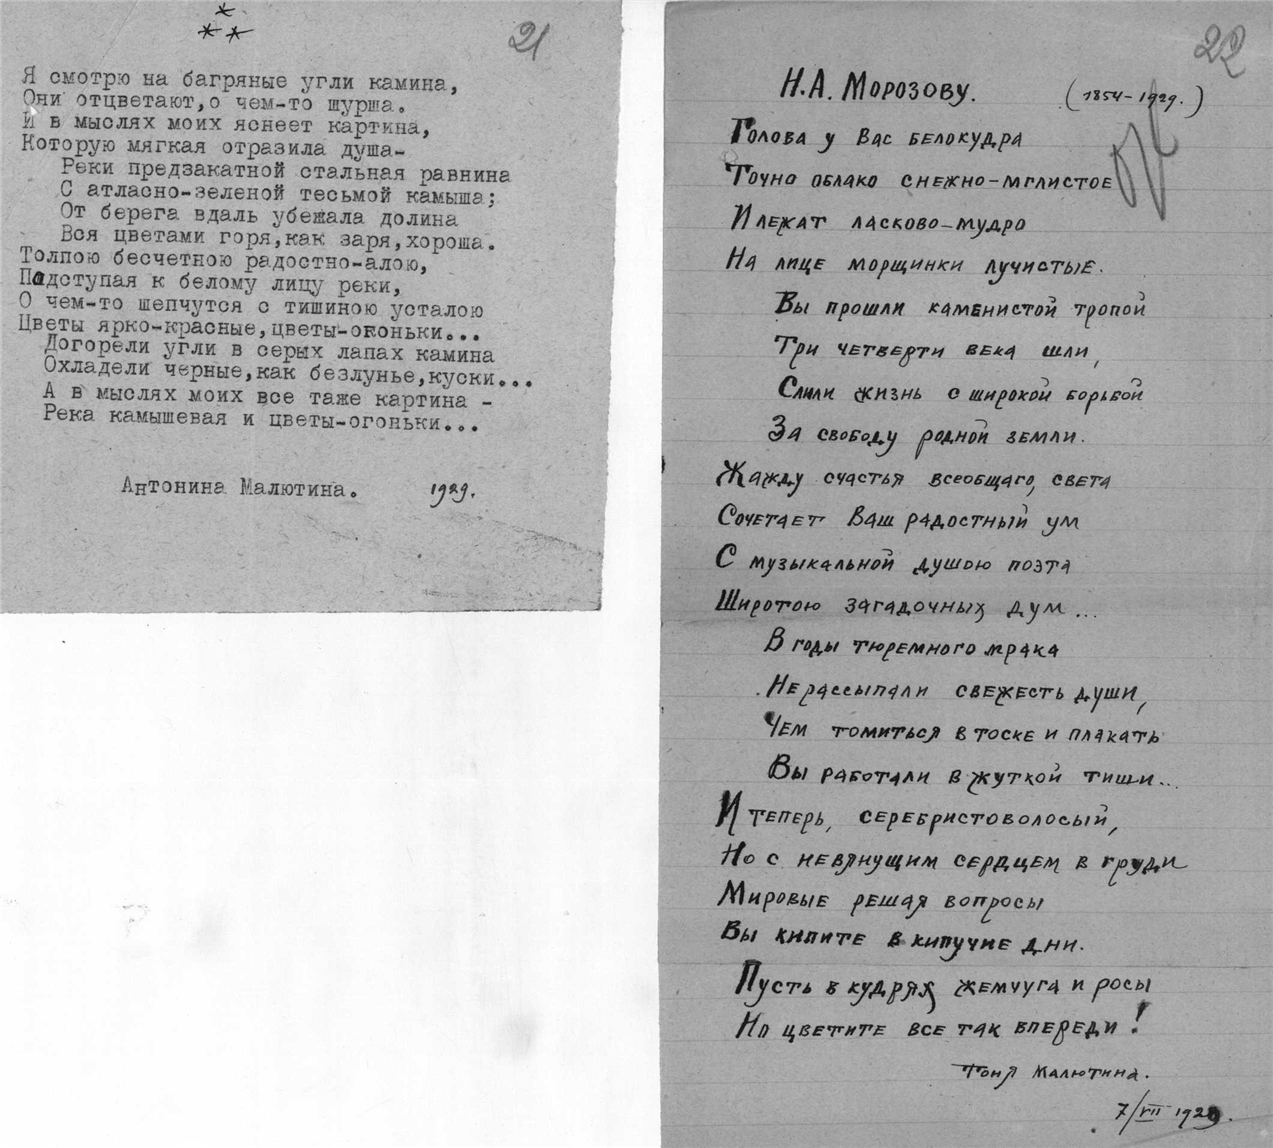 *
* *
21
Я смотрю на багряные угли камина,
Они отцветают, о чем-то шурша.
И в мыслях моих яснеет картина,
Которую мягкая отразила душа-
Реки предзакатной стальная равнина
С атласно-зеленой тесьмой камыша;
От берега вдаль убежала долина
Вся цветами горя, как заря, хороша.
Толпою бесчетною радостно-алою,
Подступая к белому лицу реки,
О чем-то шепчутся с тишиною усталою
Цветы ярко-красные, цветы-огоньки...
Догорели угли в серых лапах камина
Охладели черные, как безлунье, куски...
А в мыслях моих все таже картина -
Река камышевая и цветы-огоньки...
Антонина Малютина. 1929.
22
Н.А. Морозову.
(1854-1929.)
Голова у Вас белокудра
Точно облако снежно-мглистое
И лежат ласково-мудро
На лице морщинки лучистые.
Вы прошли каменистой тропой
Три четверти века шли,
Слили жизнь с широкой борьбой
За свободу родной земли.
Жажду счастья всеобщаго, света
Сочетает Ваш радостный ум
С музыкальной душою поэта
Широтою загадочных дум...
В годы тюремного мрака
Не рассыпали свежесть души,
Чем томиться в тоске и плакать
Вы работали в жуткой тиши...
И теперь, серебристоволосый,
Но с невянущим сердцем в груди
Мировые решая вопросы
Вы кипите в кипучие дни.
Пусть в кудрях жемчуга и росы
Но цветите все так впереди!
Тоня Малютина.
7/VII 1929.